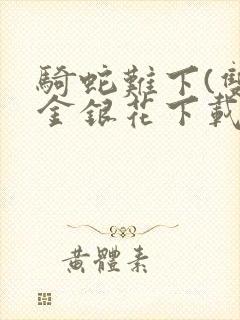 騎蛇難下(雙
金銀花下載
黃體素